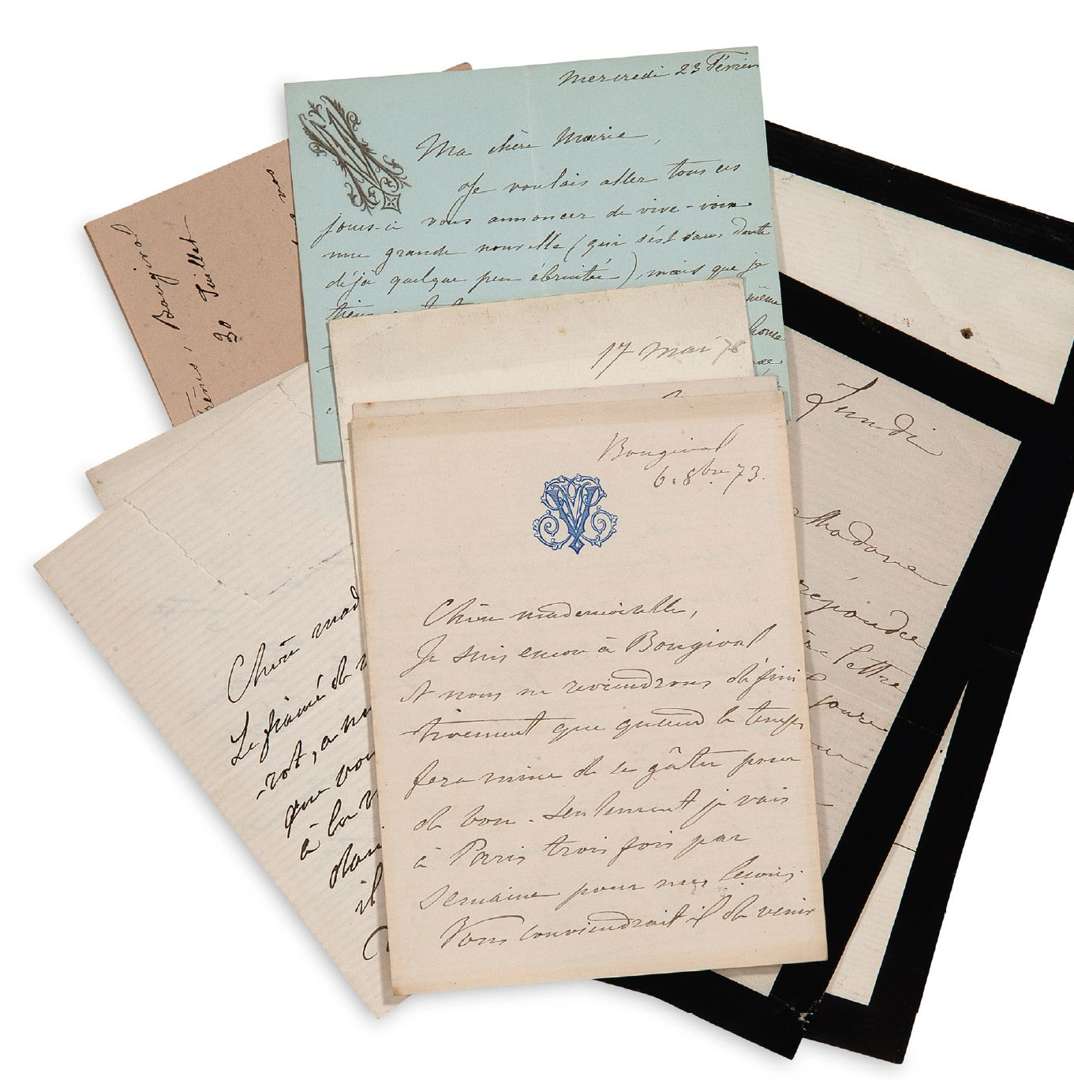 Mercredi 23 Février
Ma chère Marie,
Je voulais aller tous ces
jours-ci vous annoncer de vive-voix
une grande nouvelle (qui s'est sans doute
déjà quelque peu ébruitée), mais que je
tiens
Bougival
30 Juillet
17 Mai 76
Bougival
6. 8bre 73.
Chère mademoiselle,
Je suis encore à Bougival
et nous ne reviendrons défini
tivement que quand le temps
fera mine de se gâter pour
de bon. Seulement je vais
à Paris trois fois par
semaine pour mes leçons.
Vous conviendrait-il de venir
Chère mad
Le
-rot, a
que vou
à la v
dan
il
Lundi
Madame
répondre
lettre
jours